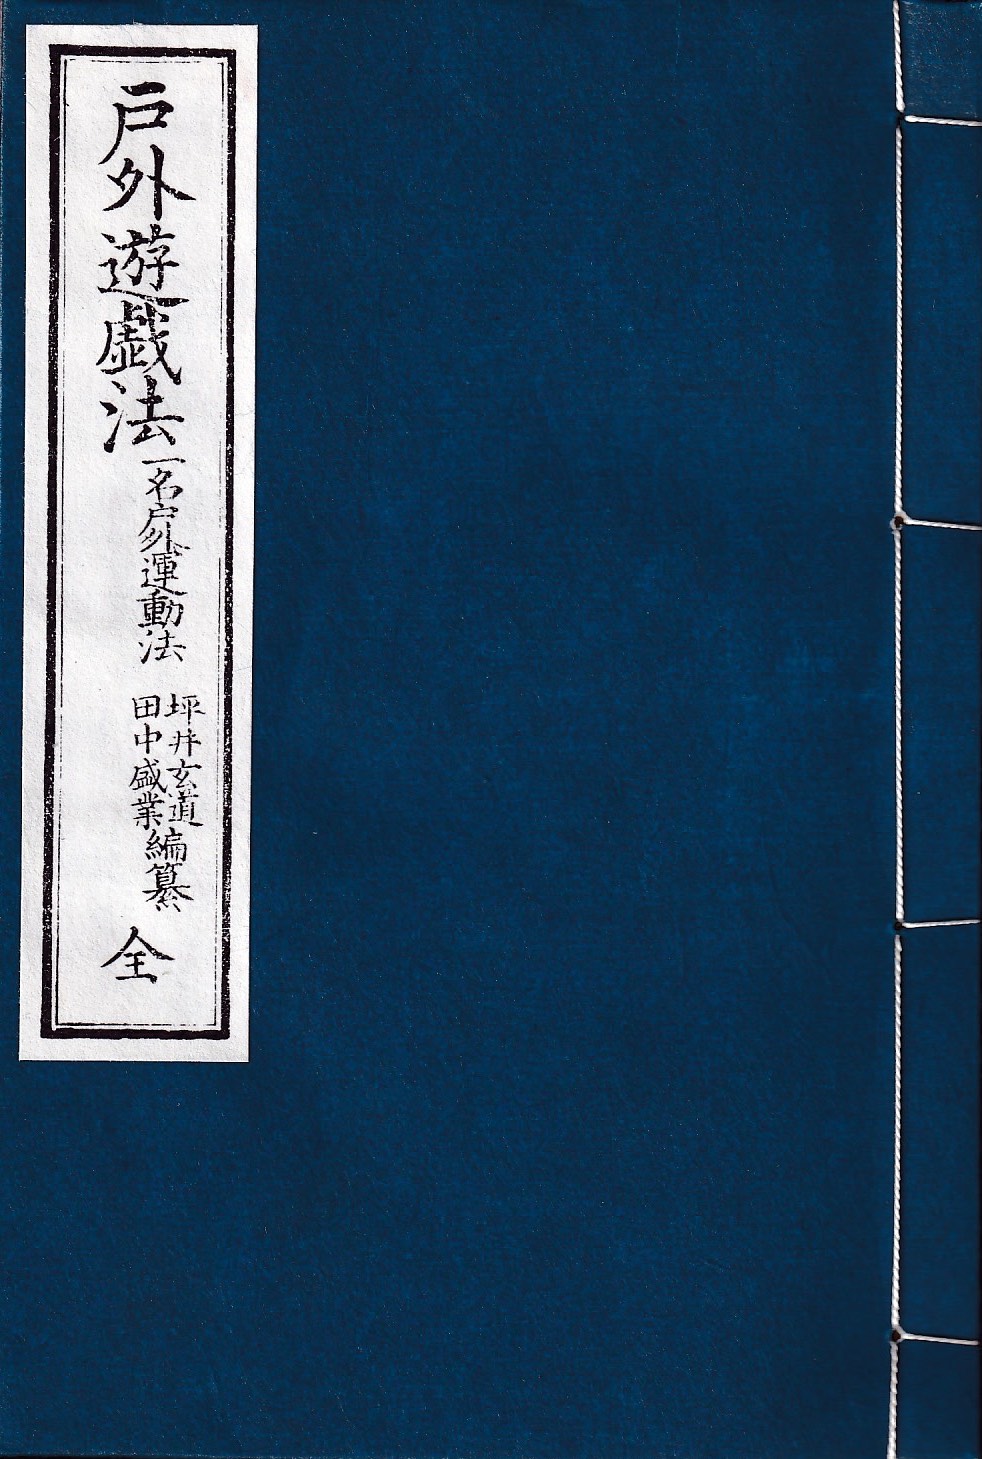 戸外遊戯法
一名戸外運動法
坪井玄道
田中盛業
編纂
全